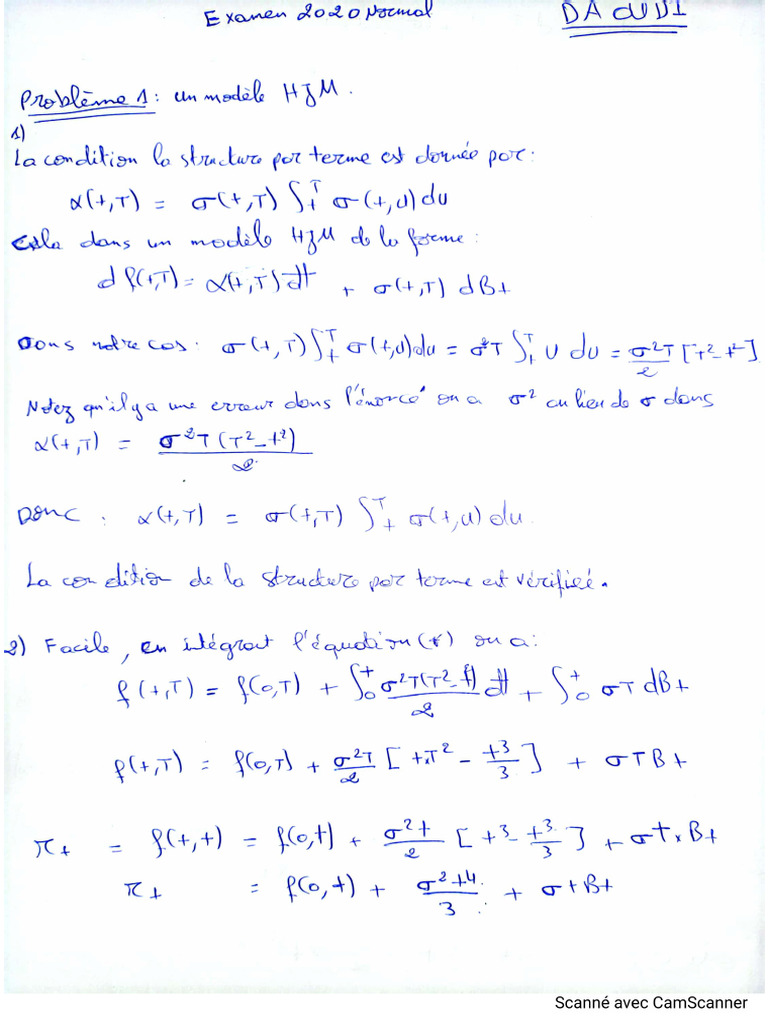 Examen 2020 Normal
DAOUDI
Problème 1: un modèle HJM.
1)
La condition la structure par terme est donnée par:
α(t,T) = σ(t,T) ∫_t^T σ(t,u) du
Cela dans un modèle HJM de la forme:
d f(t,T) = α(t,T) dt + σ(t,T) dBt
Dans notre cas: σ(t,T) ∫_t^T σ(t,u) du = σ²T ∫_t^T u du = σ²T/2 [T² - t²]
Notez qu'il y a une erreur dans l'énoncé on a σ² au lieu de σ dans
α(t,T) = σ²T(T²-t²)/2
Donc : α(t,T) = σ(t,T) ∫_t^T σ(t,u) du.
La condition de la structure par terme est vérifiée.
2) Facile, en intégrant l'équation (*) on a:
f(t,T) = f(0,T) + ∫_0^t σ²T(T²-t²)/2 dt + ∫_0^t σT dBt
f(t,T) = f(0,T) + σ²T/2 [t×T² - t³/3] + σTBt
πt = f(t,t) = f(0,t) + σ²t/2 [t³ - t³/3] + σt×Bt
πt = f(0,t) + σ²t⁴/3 + σtBt
Scanné avec CamScanner